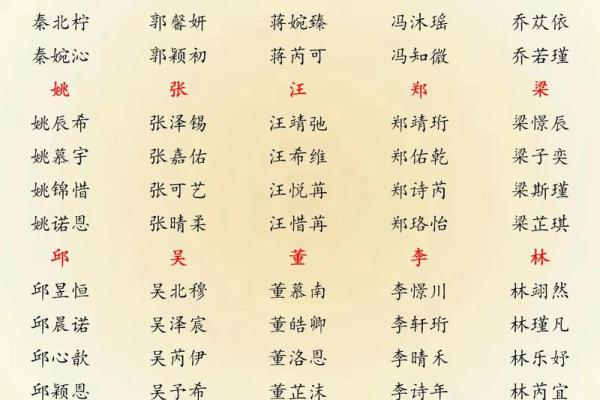 秦北柠 郭馨妍 蒋婉臻 冯沐瑶 乔苡依
秦婉沁 郭颖初 蒋芮可 冯知微 乔若瑾
姚 张 汪 郑 梁
姚辰希 张泽锡 汪靖弛 郑靖珩 梁憬辰
姚慕宇 张嘉佑 汪希维 郑佑乾 梁子奕
姚锦惜 张可艺 汪悦苒 郑诗芮 梁斯瑾
姚诺恩 张晴柔 汪惜苒 郑珞怡 梁芷琪
邱 吴 董 李 林
邱昱恒 吴北穆 董慕南 李憬川 林翊然
邱晨诺 吴泽宸 董皓卿 李轩珩 林瑾凡
邱心歆 吴芮伊 董洛恩 李晴禾 林乐妤
邱颖恩 吴予希 董芷沫 李诗年 林芮宜